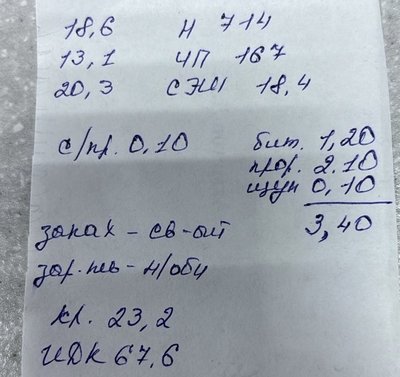 18,6 Н 714
13,1 ЧП 167
20,3 СЭШ 18,4
с/пр. 0,10 бит. 1,20
прор. 2.10
щуп 0,10
3,40
запах - св-ый
зар.-ть - н/обн
Кл. 23,2
ИДК 67,6